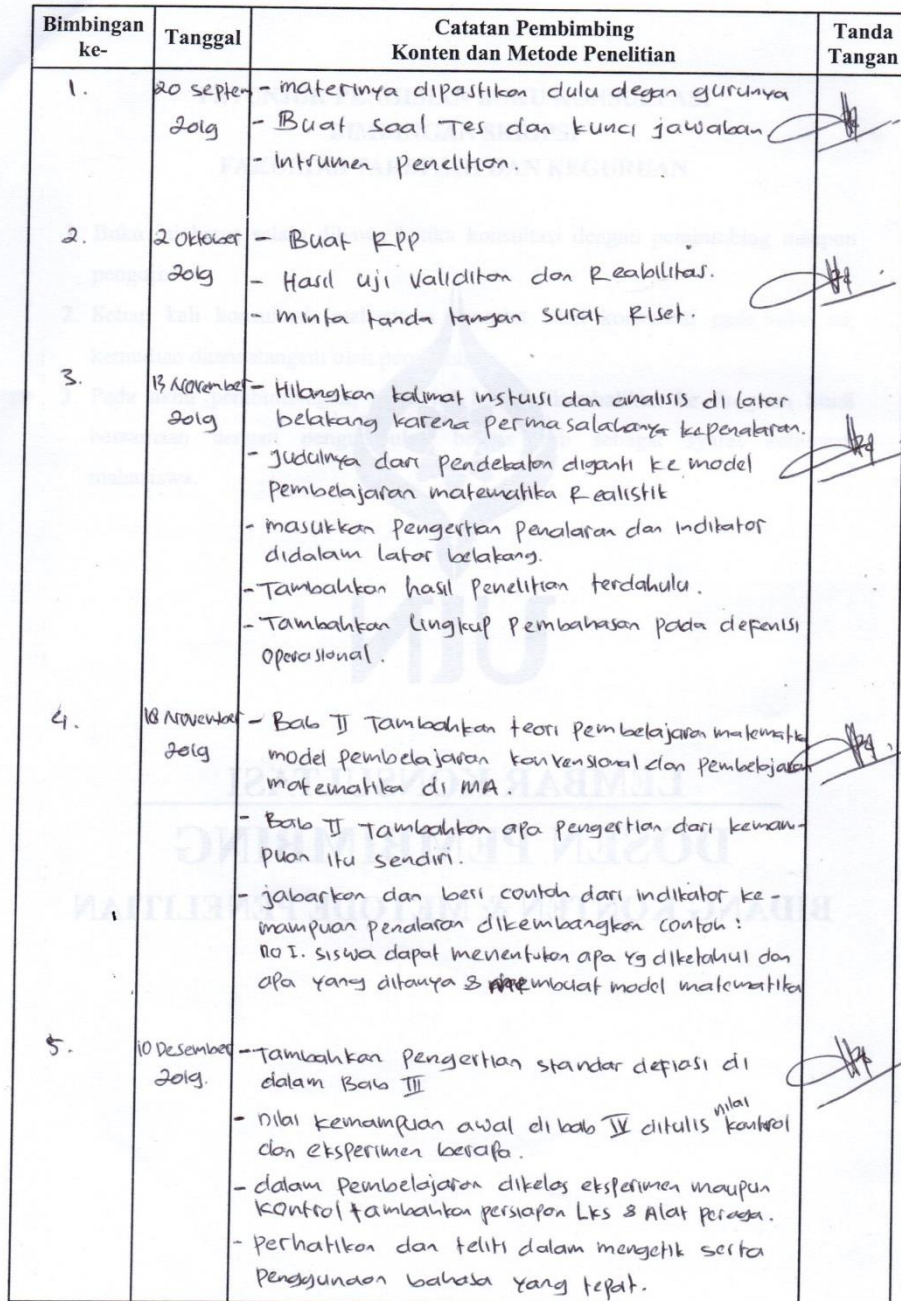 Bimbingan ke-
Tanggal
Catatan Pembimbing
Konten dan Metode Penelitian
Tanda Tangan
1. 20 septem - materinya dipastikan dulu degan gurunya
2019 - Buat soal Tes dan kunci jawaban
- Intrumen Penelitian.
2. 2 Oktober - Buat RPP
2019 - Hasil uji Validitan dan Reabilitas.
- minta tanda tangan surat Riset.
3. 13 November - Hilangkan kalimat instuisi dan analisis di latar
2019 belakang karena permasalahanya kepenalaran.
- Judulnya dari pendekatan diganti ke model
Pembelajaran matematika Realistik
- masukkan pengertian penalaran dan indikator
didalam latar belakang.
- Tambahkan hasil Penelitian terdahulu.
- Tambahkan Lingkup Pembahasan pada defenisi
Operasional.
4. 18 November - Bab II Tambahkan teori Pembelajaran matematika
2019 model pembelajaran konvensional dan pembelajaran
matematika di MA.
- Bab II Tambahkan apa pengertian dari kemam-
puan itu sendiri.
- jabarkan dan beri contoh dari indikator ke-
mampuan penalaran dikembangkan contoh :
no I. siswa dapat menentukan apa yg diketahui dan
apa yang ditanya & membuat model matematika
5. 10 Desember - Tambahkan pengertian standar defiasi di
2019. dalam Bab III
- nilai kemampuan awal di bab IV ditulis nilai kontrol
dan eksperimen berapa.
- dalam Pembelajaran dikelas eksperimen maupun
kontrol tambahkan persiapan Lks & Alat peraga.
- perhatikan dan teliti dalam mengetik serta
Penggunaan bahasa yang tepat.
UIN
LEMBAR KONSULTASI
DOSEN PEMBIMBING
BIDANG KONTEN & METODE PENELITIAN